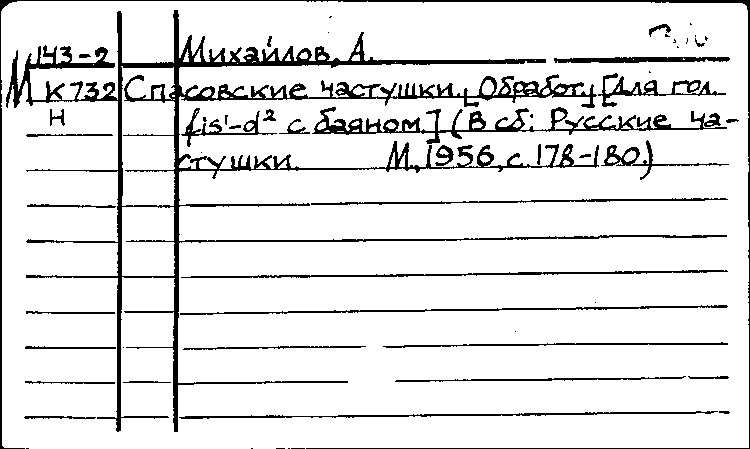 М 143-2 Михайлов, А.
К732 Спасовские частушки. [Обработ.] [Для гол.
Н fis¹-d² с баяном.] (В сб: Русские ча-
стушки. М., 1956, с. 178-180.)